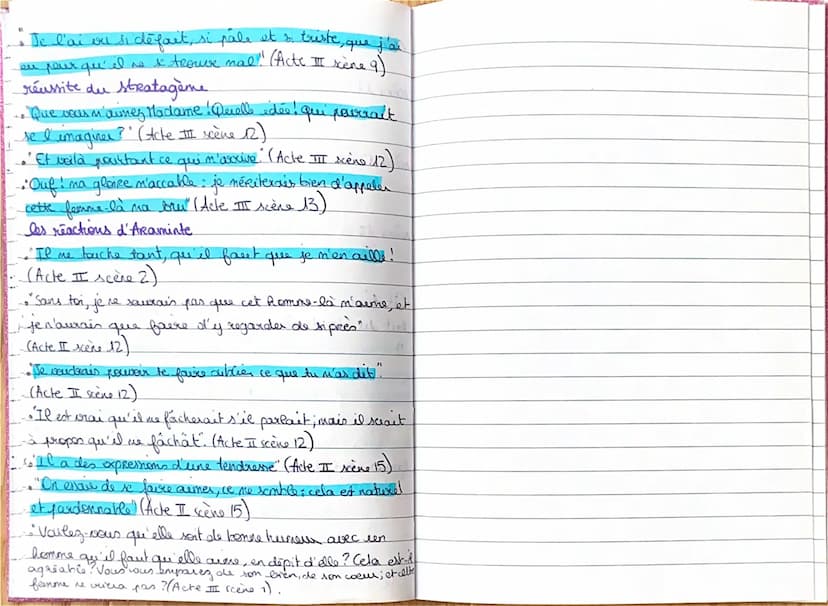 "Je l'ai vu si défait, si pâle et si triste, que j'ai
eu peur qu'il ne se trouve mal". (Acte III scène 9)
réussite du stratagème
• "Que vous m'aimez Madame ! Quelle idée ! qui pourrait
se l'imaginer ?" (Acte III scène 12)
• "Et voilà pourtant ce qui m'arrive." (Acte III scène 12)
• "Ouf ! ma gloire m'accable : je mériterais bien d'appeler
cette femme-là ma bru" (Acte III scène 13)
les réactions d'Araminte
• "Il me touche tant, qu'il faut que je m'en aille" !
(Acte II scène 2)
• "Sans toi, je ne saurais pas que cet homme-là m'aime, et
je n'aurais que faire d'y regarder de si près"
(Acte II scène 12)
• "Je voudrais pouvoir te faire oublier ce que tu m'as dit".
(Acte II scène 12)
• "Il est vrai qu'il me fâcherait s'il parlait ; mais il serait
à propos qu'il me fâchât". (Acte II scène 12)
• "Il a des expressions d'une tendresse" (Acte II scène 15)
• "On essaie de se faire aimer, ce me semble : cela est naturel
et pardonnable" (Acte II scène 15)
• "Voulez-vous qu'elle soit de bonne humeur avec un
homme qu'il faut qu'elle aime, en dépit d'elle ? Cela est-il
agréable ? Vous vous emparez de son bien, de son coeur ; et cette
femme ne criera pas ? (Acte III scène 1).